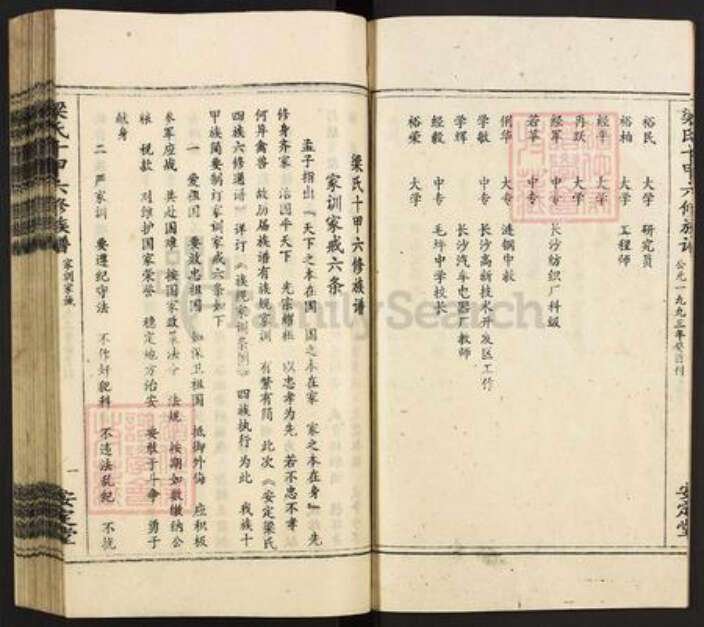 梁氏十甲六修族谱
公元一九九三年癸酉刊
安定堂
裕民 大学 研究员
裕柏 大学 工程师
经平 大学
再跃 大学
经军 中专 长沙纺织厂科级
若革 中专
俐华 大专 涟钢中教
学敏 中专 长沙高新技术开发区工作
学辉 中专 长沙汽车电器厂教师
经毅 中专 毛坪中学校长
裕荣 大学
梁氏十甲六修族谱
家训家戒六条
孟子指出“天下之本在国 国之本在家 家之本在身” 先
修身齐家 治国平天下 光宗耀祖 以忠孝为先 若不忠不孝
何异禽兽 故历届族谱有族规家训 有繁有简 此次《安定梁氏
四族六修通谱》详订《族规家训条例》 四族执行为此 我族十
甲族简要制订家训家戒六条如下
一 爱祖国 要放忠祖国 如保卫祖国 抵御外侮 应积极
参军应战 共赴困难 按国家政策法令 法规 按期如数缴纳公
粮 税款 对维护国家荣誉 稳定地方治安 要敢于斗争 勇于
献身
二 严家训 要遵纪守法 不作奸犯科 不违法乱纪 不
梁氏十甲六修族谱
家训家戒
一
安定堂
FamilySearch